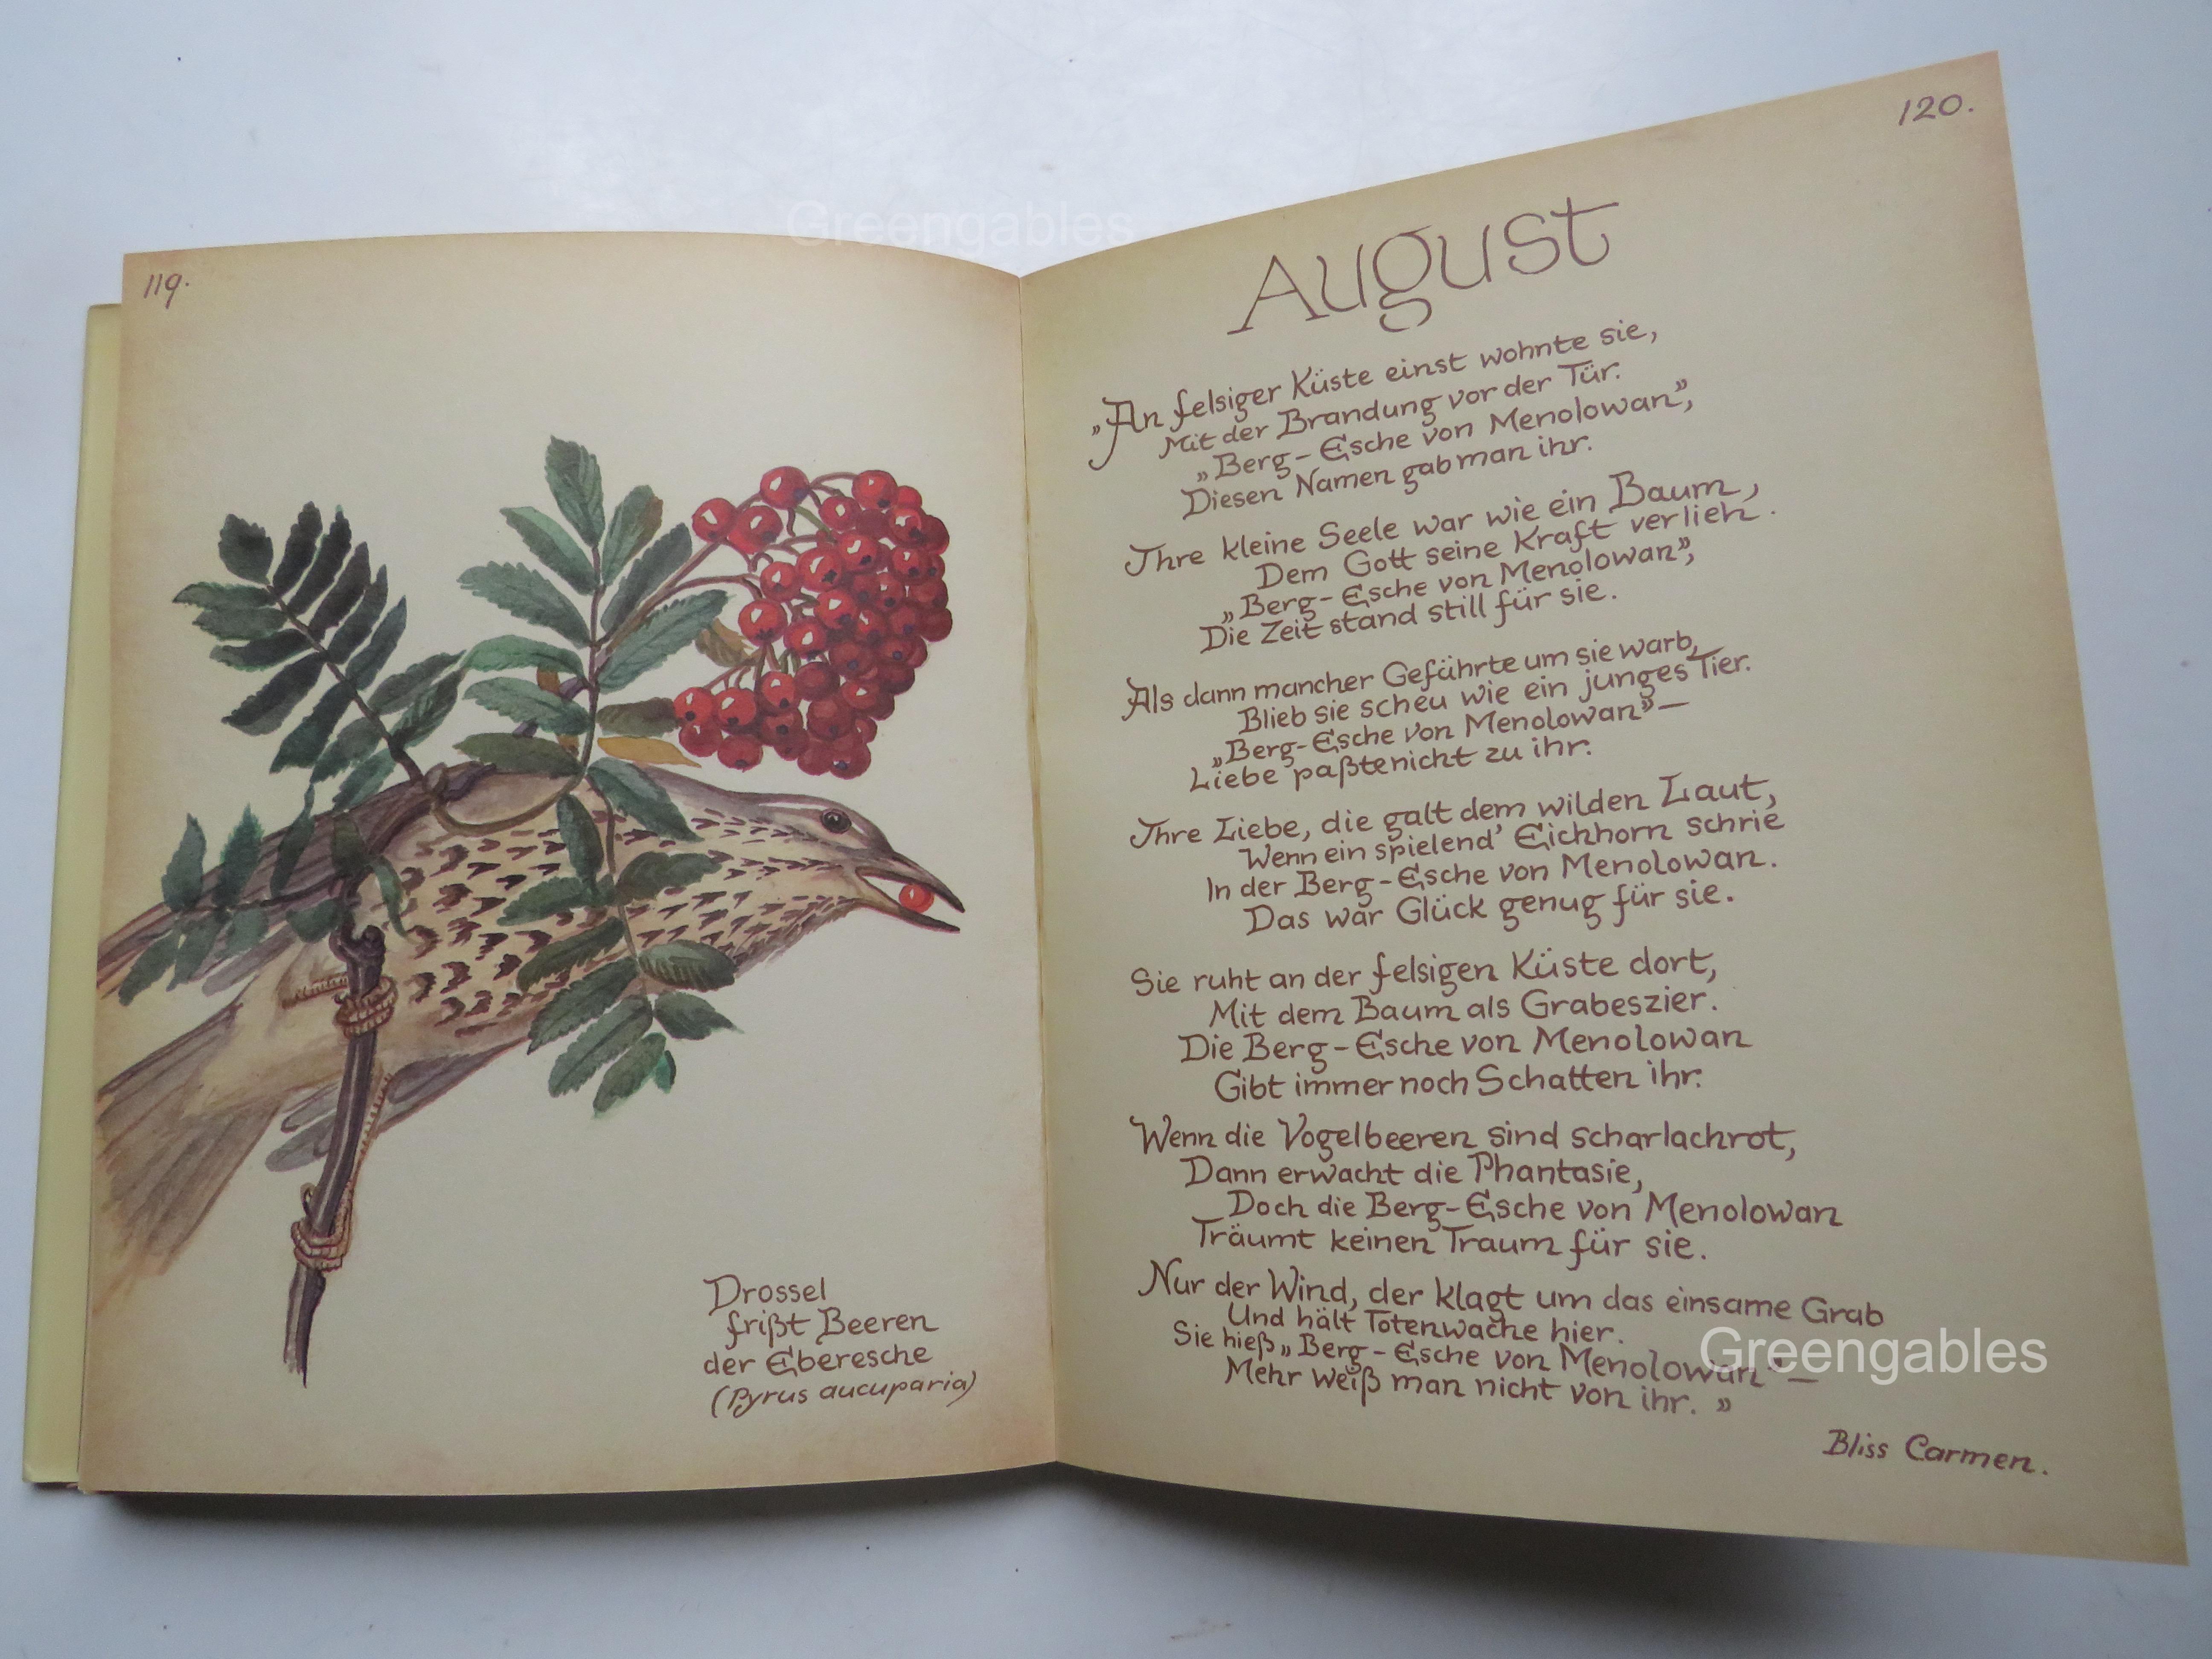 Greengables
119.
Drossel
frißt Beeren
der Eberesche
(Pyrus aucuparia)
120.
August
„An felsiger Küste einst wohnte sie,
Mit der Brandung vor der Tür.
„Berg-Esche von Menolowan”,
Diesen Namen gab man ihr.
Ihre kleine Seele war wie ein Baum,
Dem Gott seine Kraft verlieh.
„Berg-Esche von Menolowan”,
Die Zeit stand still für sie.
Als dann mancher Gefährte um sie warb,
Blieb sie scheu wie ein junges Tier.
„Berg-Esche von Menolowan” —
Liebe paßte nicht zu ihr.
Ihre Liebe, die galt dem wilden Laut,
Wenn ein spielend' Eichhorn schrie
In der Berg-Esche von Menolowan.
Das war Glück genug für sie.
Sie ruht an der felsigen Küste dort,
Mit dem Baum als Grabeszier.
Die Berg-Esche von Menolowan
Gibt immer noch Schatten ihr.
Wenn die Vogelbeeren sind scharlachrot,
Dann erwacht die Phantasie,
Doch die Berg-Esche von Menolowan
Träumt keinen Traum für sie.
Nur der Wind, der klagt um das einsame Grab
Und hält Totenwache hier.
Sie hieß „Berg-Esche von Menolowan” —
Mehr weiß man nicht von ihr. ”
Greengables
Bliss Carmen.